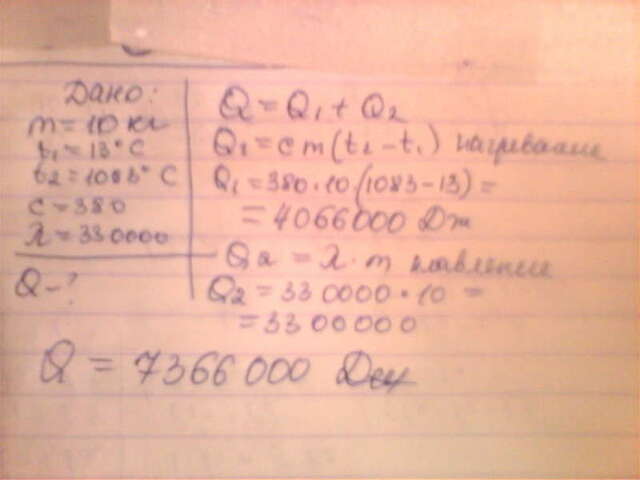 Дано:
m = 10 кг
t₁ = 13° C
t₂ = 1083° C
c = 380
λ = 330000
Q - ?
Q = Q₁ + Q₂
Q₁ = c m (t₂ - t₁) нагревание
Q₁ = 380 · 10 (1083 - 13) =
= 4066000 Дж
Q₂ = λ · m плавление
Q₂ = 330000 · 10 =
= 3300000
Q = 7366000 Дж